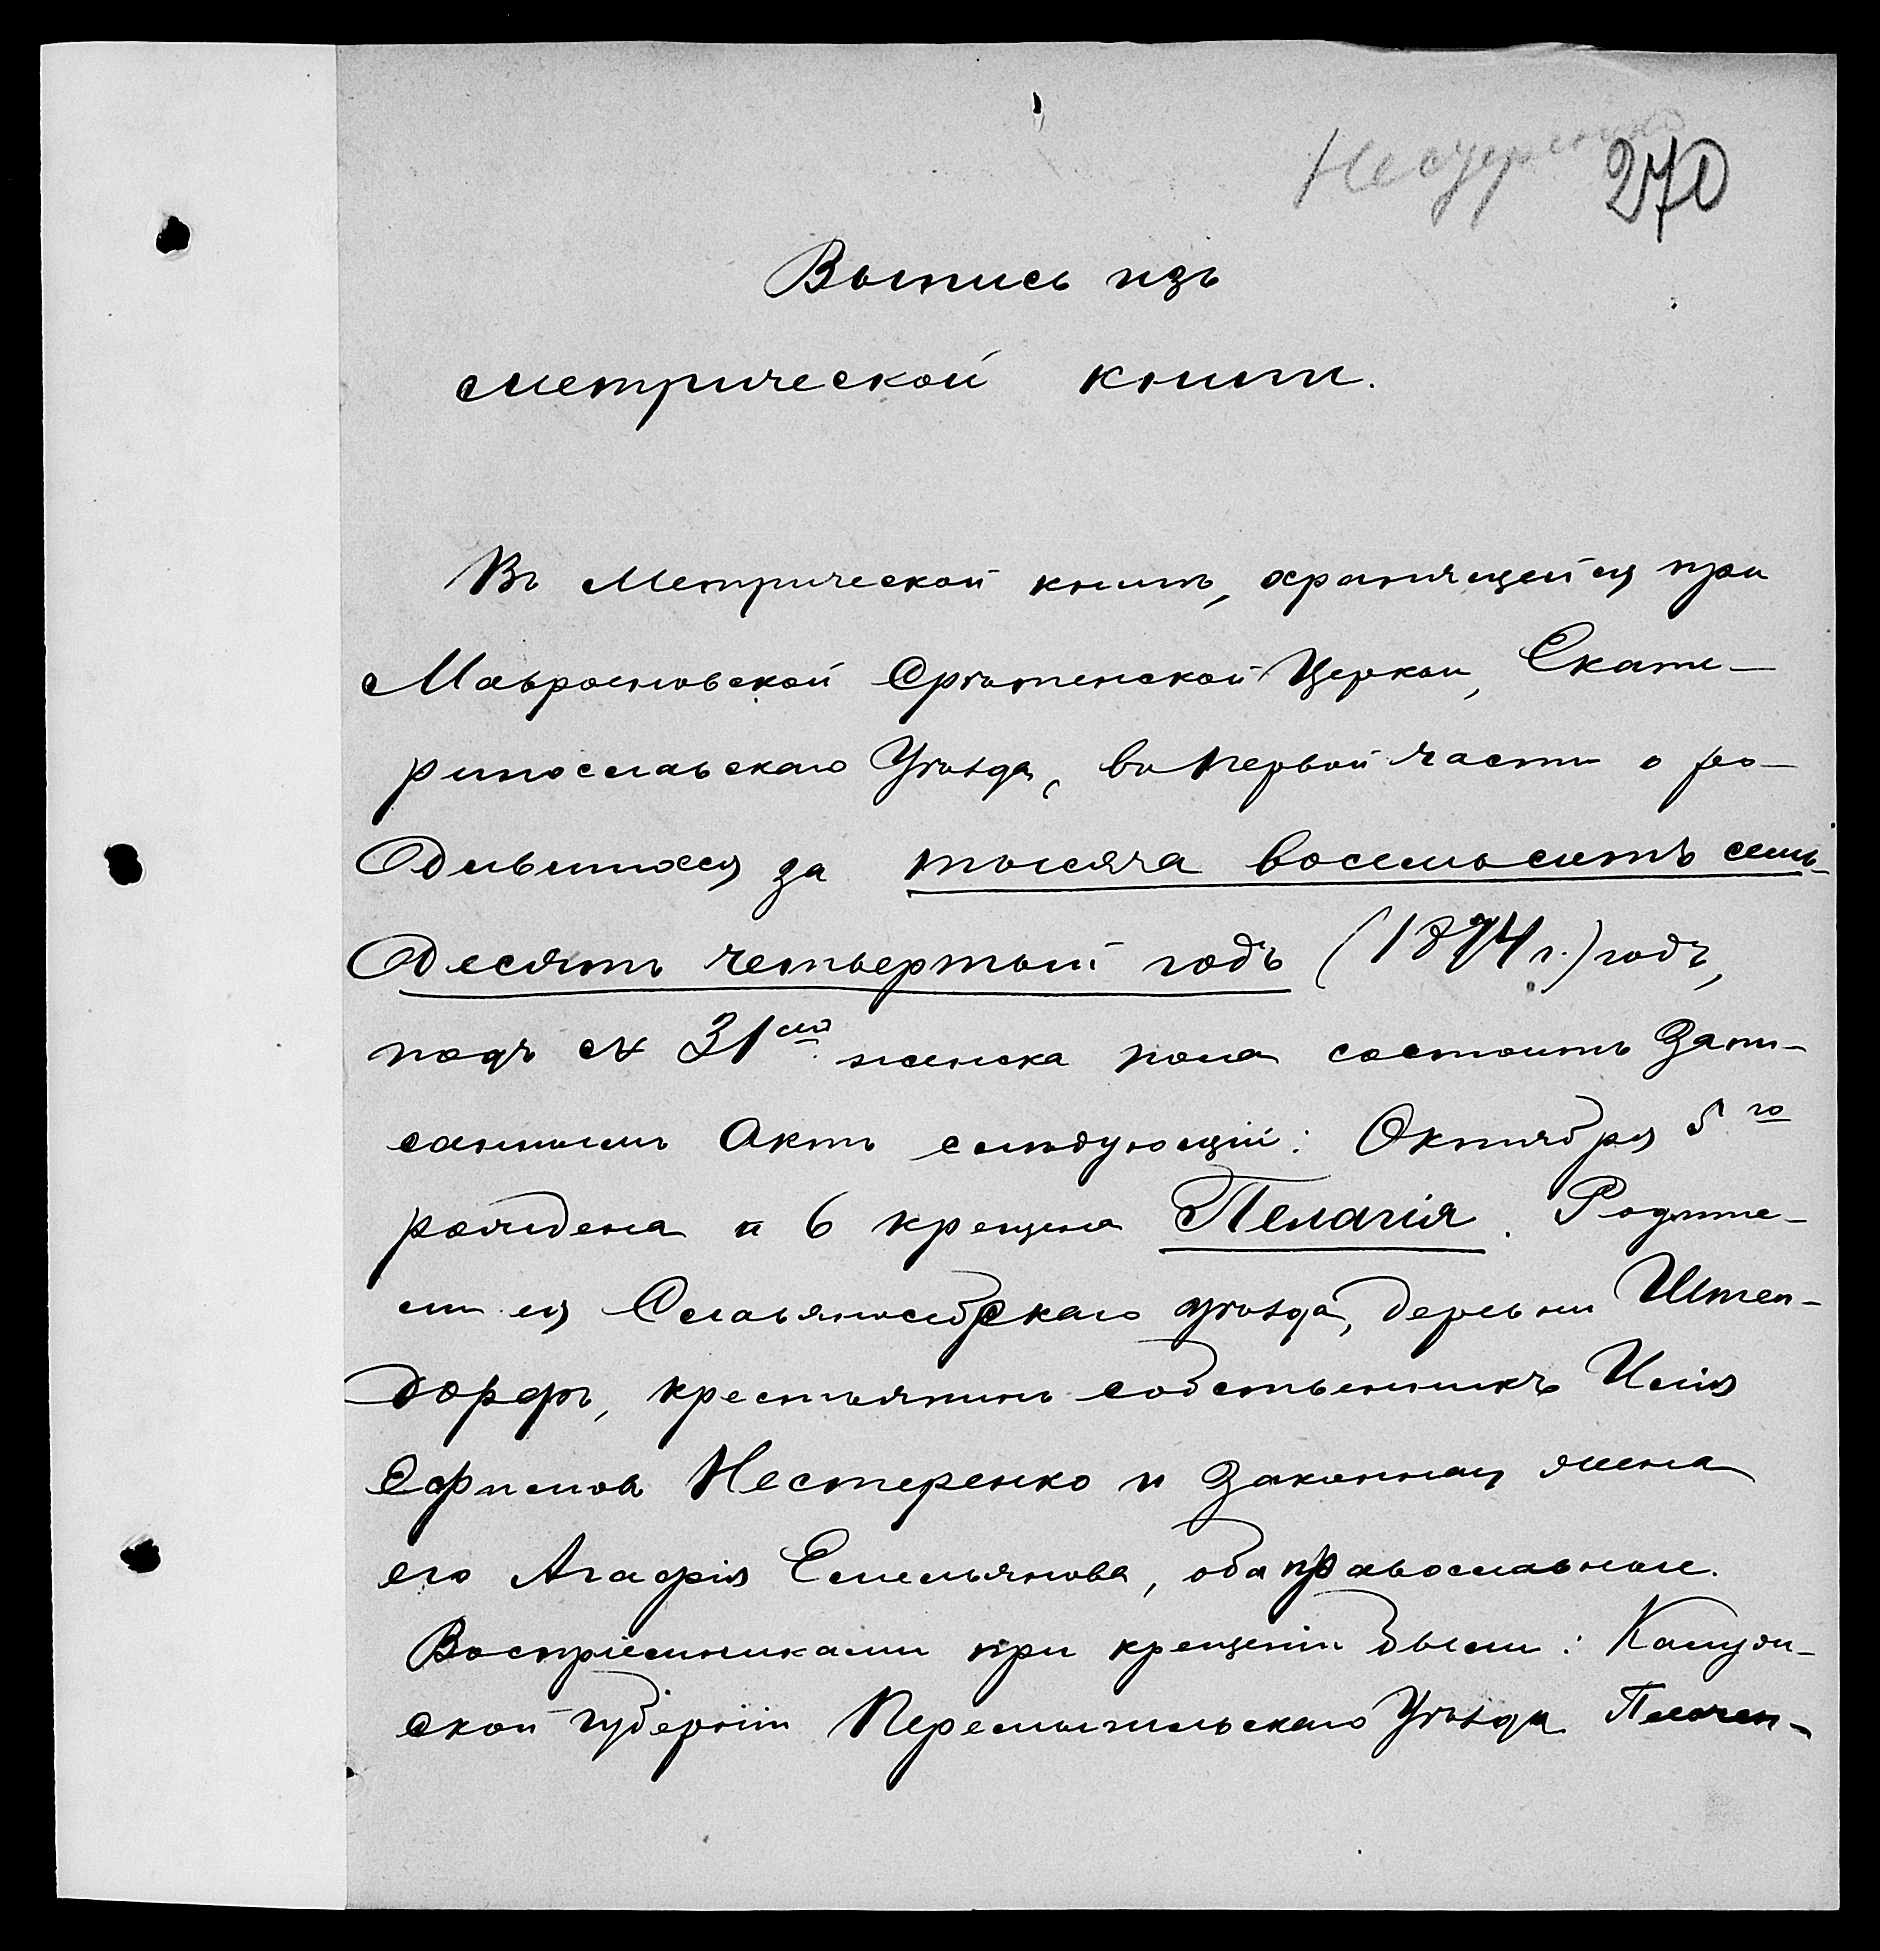 Нестеренко
270
Выпись изъ
метрической книги.
Въ Метрической книгѣ, хранящейся при
Маврояновской Срѣтенской Церкви, Екате-
ринославскаго Уѣзда, въ первой части о ро-
дившихся за тысяча восемьсотъ семь-
десятъ четвертый годъ (1874 г.) годъ,
подъ № 31ый женска пола состоитъ Запи-
саннымъ Актъ слѣдующій: Октября 5го
рождена и 6 крещена Пелагія. Родите-
ли ея Славяносербскаго уѣзда, деревни Штен-
дорфъ, крестьянинъ собственникъ Илія
Ефимовъ Нестеренко и законная жена
его Агафія Емельянова, оба православные.
Воспріемниками при крещеніи были: Калуж-
ской губерніи Перемышльскаго Уѣзда